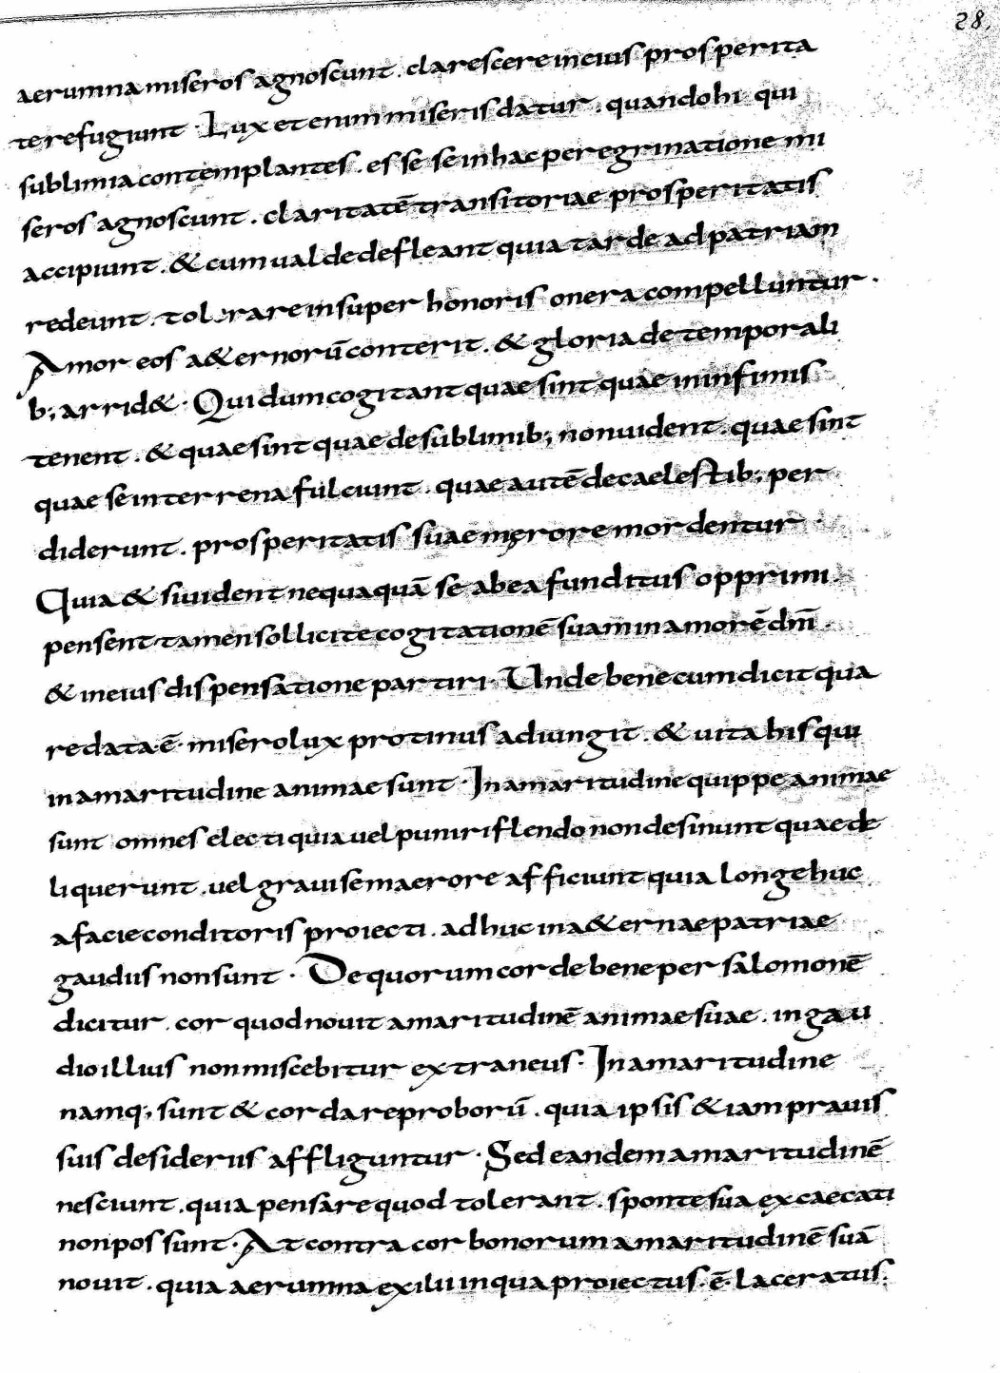 28.
aerumna miseros agnoscunt. clarescere in eius prosperita
te refugiunt. Lux etenim miseris datur. quando hi qui
sublimia contemplantes. esse se in hac peregrinatione mi
seros agnoscunt. claritatē transitoriae prosperitatis
accipiunt. & cum ualde defleant quia tarde ad patriam
redeunt. tolerare insuper honoris onera compelluntur.
Amor eos a&ernorū conterit. & gloria de temporali
b; arrid&. Qui dum cogitant quae sint quae in infimis
tenent. & quae sint quae de sublimib; non uident. quae sint
quae se in terrena fulciunt. quae autē de caelestib; per
diderunt. prosperitatis suae męrore mordentur.
Quia & si uident nequaquā se ab ea funditus opprimi.
pensent tamen sollicite cogitationē suam in amorē dm̄.
& in eius dispensatione partiri. Unde bene cum dicit qua
re data ē misero lux protinus adiungit. & uita his qui
in amaritudine animae sunt. In amaritudine quippe animae
sunt omnes electi quia uel puniri flendo non desinunt quae de
liquerunt. uel graui se maerore afficiunt quia longe huc
a facie conditoris proiecti. adhuc in a&ernae patriae
gaudiis non sunt. De quorum corde bene per salomonē
dicitur. cor quod nouit amaritudinē animae suae. in gau
dio illius non miscebitur extraneus. In amaritudine
namq; sunt & corda reproborū. quia ipsis &iam prauis
suis desideriis affliguntur. Sed eandem amaritudinē
nesciunt. quia pensare quod tolerant. sponte sua excaecati
non possunt. At contra cor bonorum amaritudinē suā
nouit. quia aerumna exilii in qua proiectus. ē. laceratus.